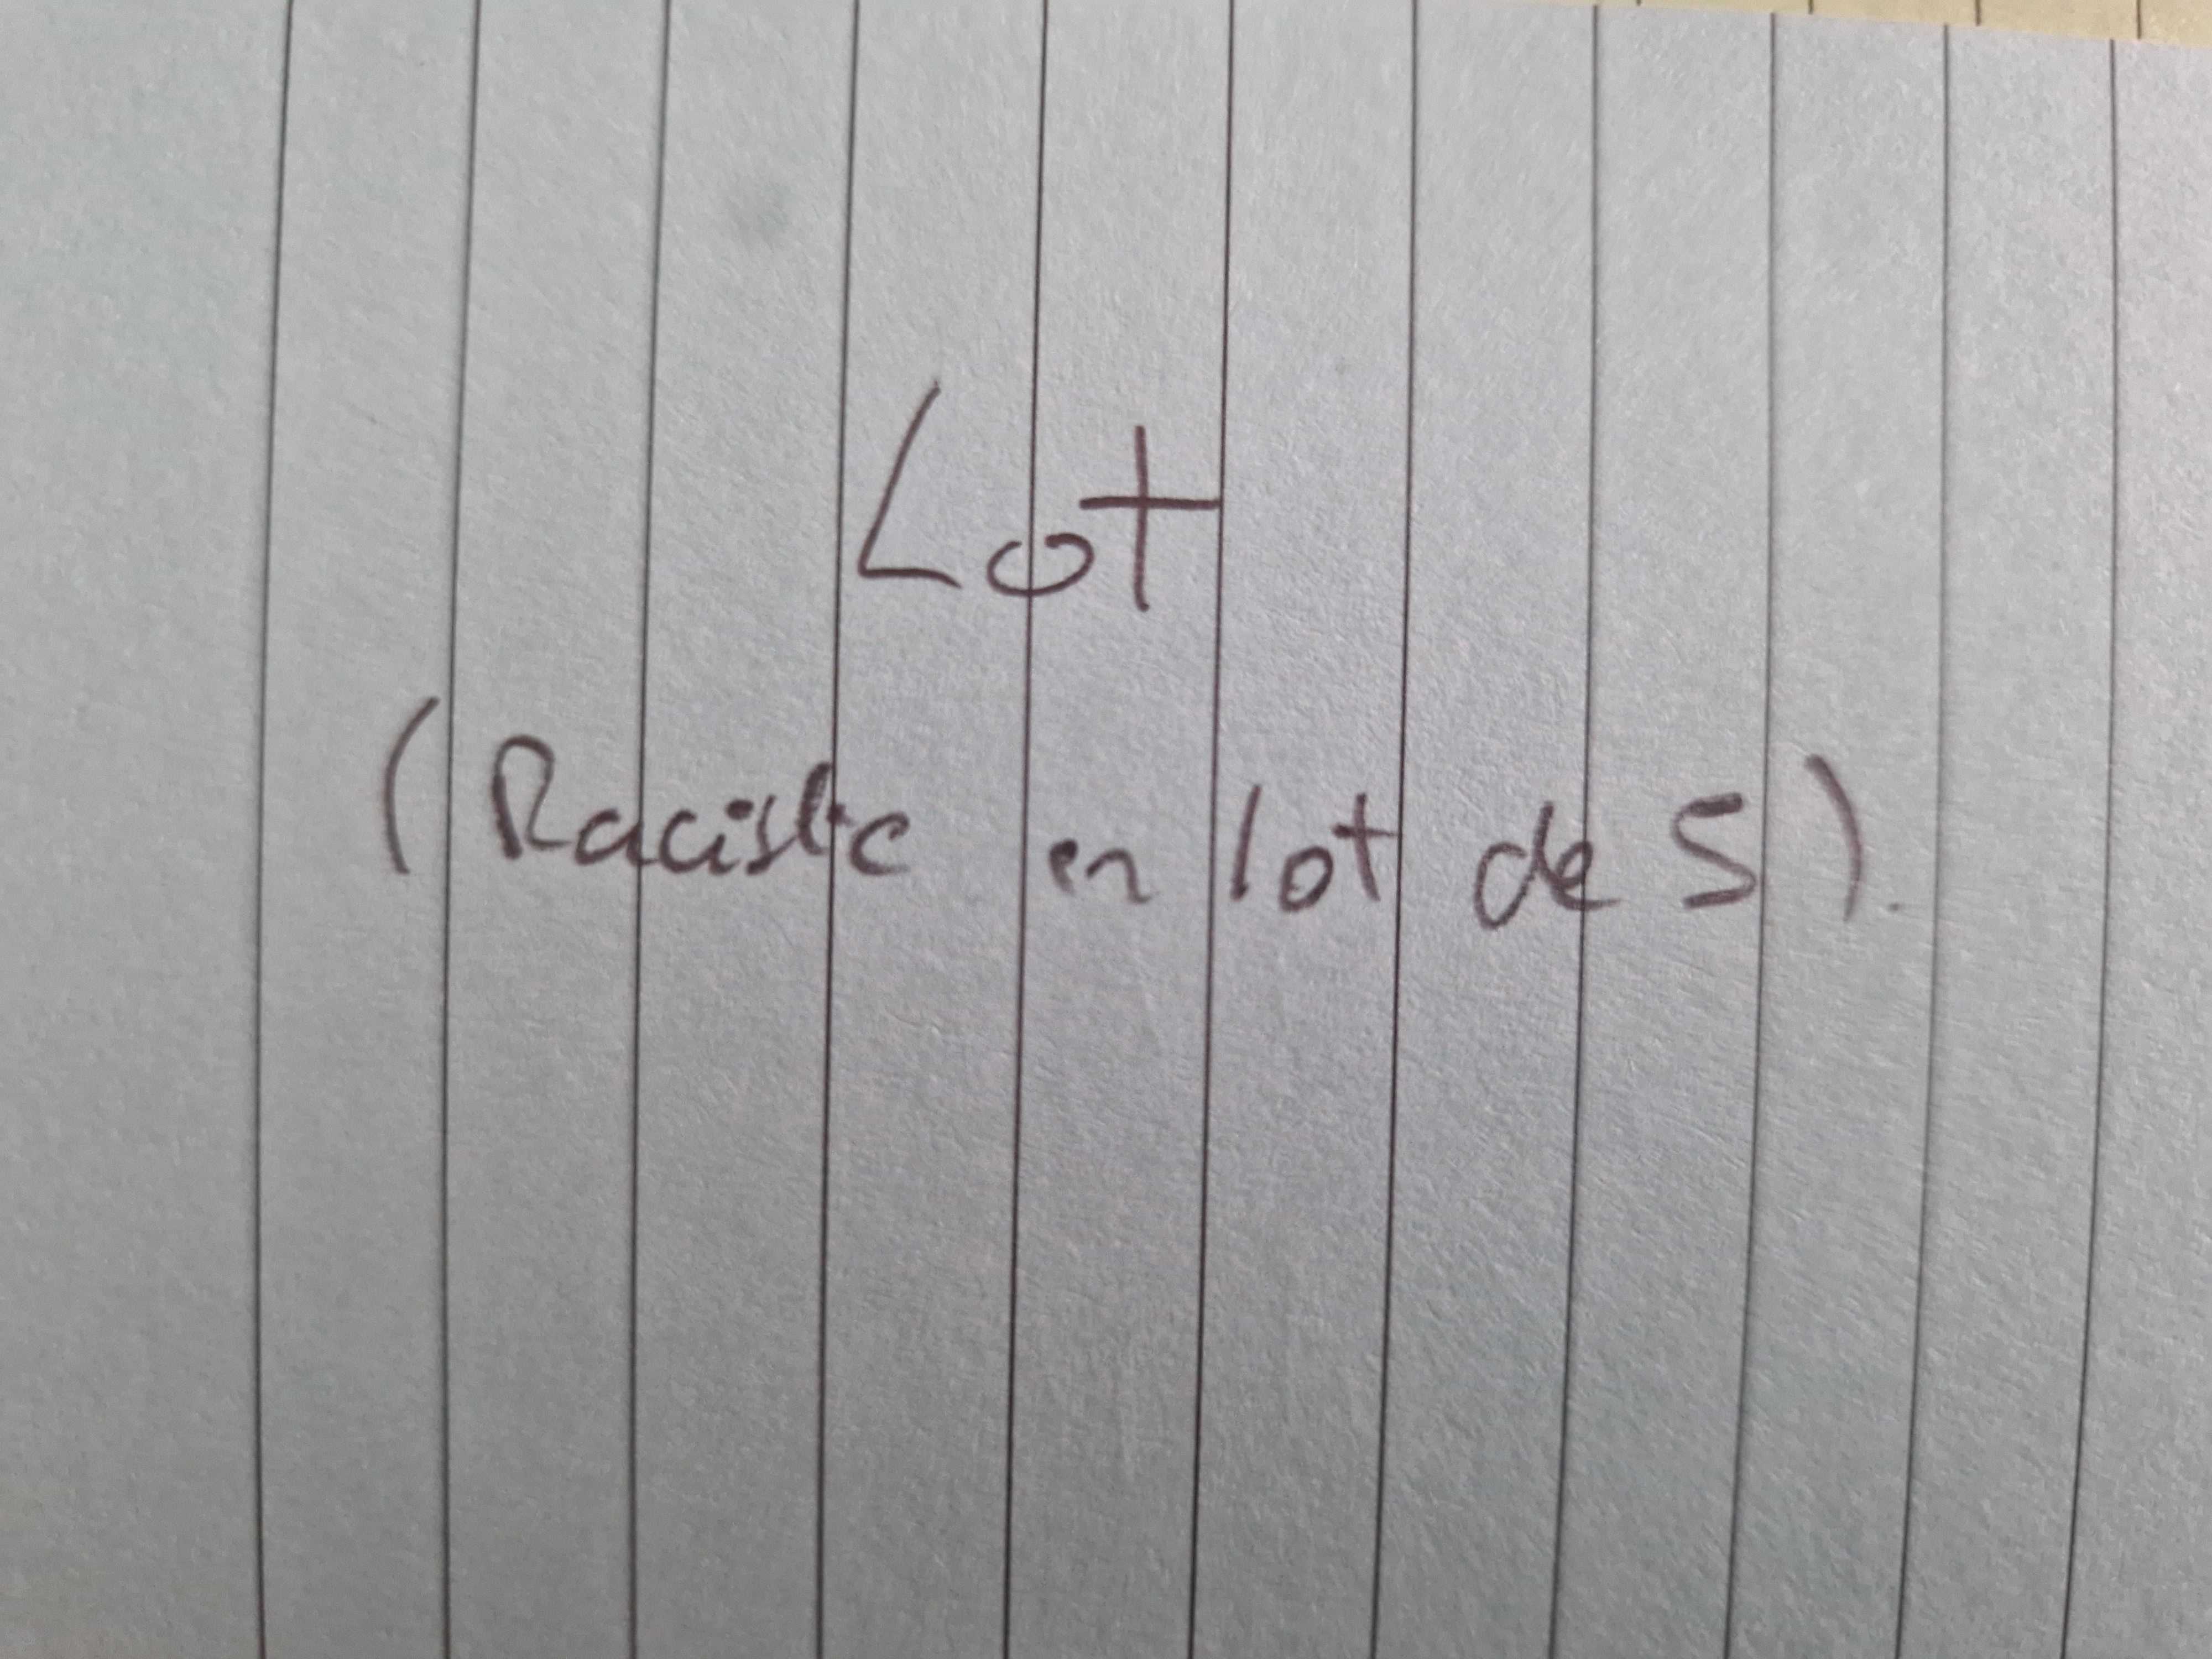 Lot
(Raciste en lot de 5).